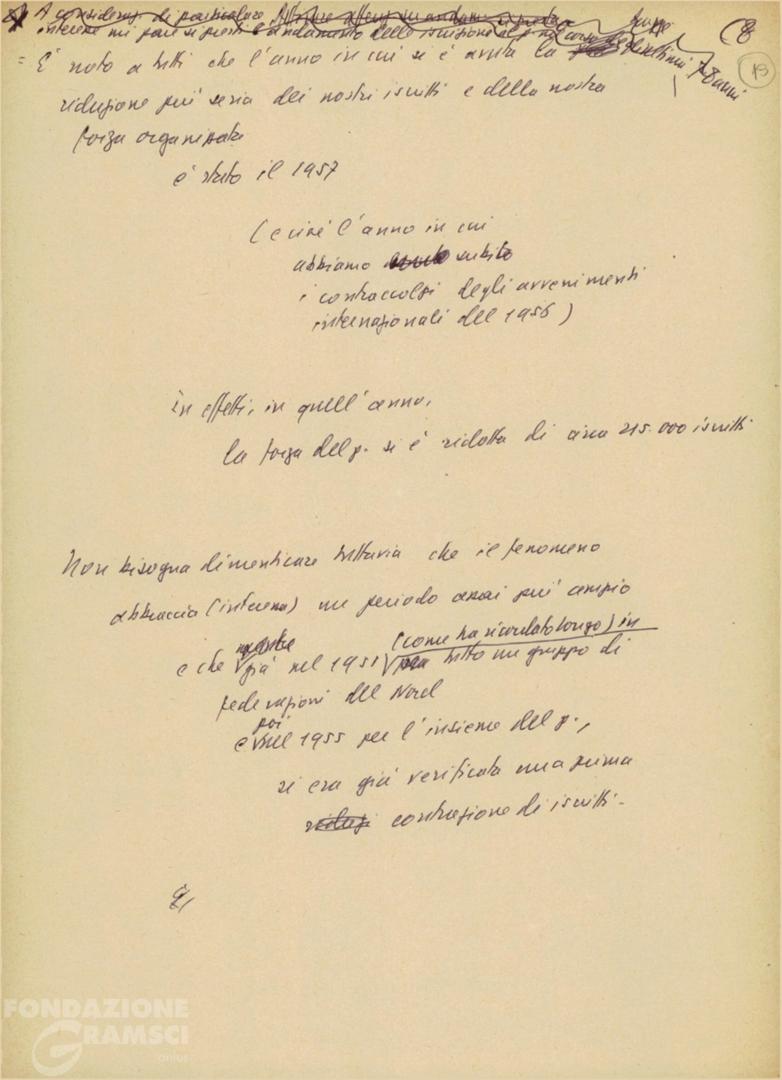 A considerazi. di particolare
interesse mi pare si presti l'andamento delle iscrizione al p. nel corso degli ultimi 7-8 anni
(8
19
= È noto a tutti che l'anno in cui si è avuta la
riduzione più seria dei nostri iscritti e della nostra
forza organizzata
è stato il 1957
(e cioè l'anno in cui
abbiamo avuto subito
i contraccolpi degli avvenimenti
internazionali del 1956)
In effetti, in quell'anno,
la forza del p. si è ridotta di circa 215.000 iscritti
Non bisogna dimenticare tuttavia che il fenomeno
abbraccia (interessa) un periodo assai più ampio
(come ha ricordato Longo) in
e che già nel 1951 per tutto un gruppo di
federazioni del Nord
poi
e nel 1955 per l'insieme del p.,
si era già verificata una prima
riduzi contrazione di iscritti.
È,
FONDAZIONE
GRAMSCI
onlus